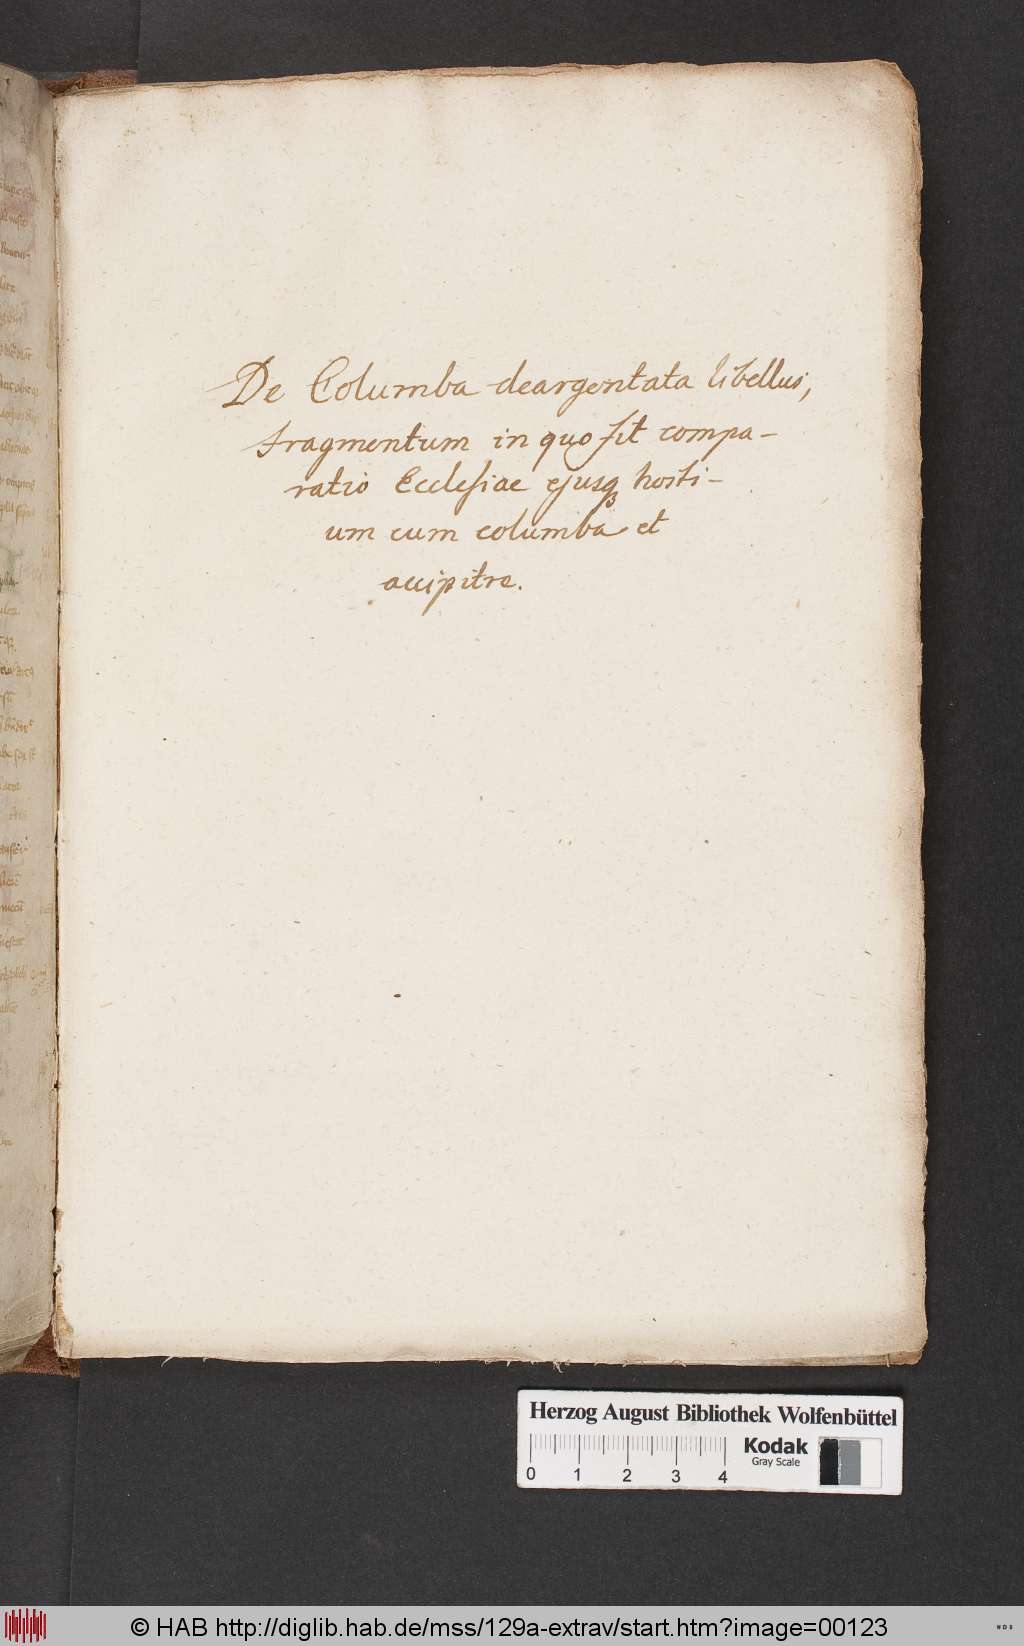 De Columba deargentata libellus,
fragmentum in quo fit compa-
ratio Ecclesiae ejusqꝫ hosti-
um cum columba et
accipitre.
Herzog August Bibliothek Wolfenbüttel
0 1 2 3 4
Kodak
Gray Scale
© HAB http://diglib.hab.de/mss/129a-extrav/start.htm?image=00123